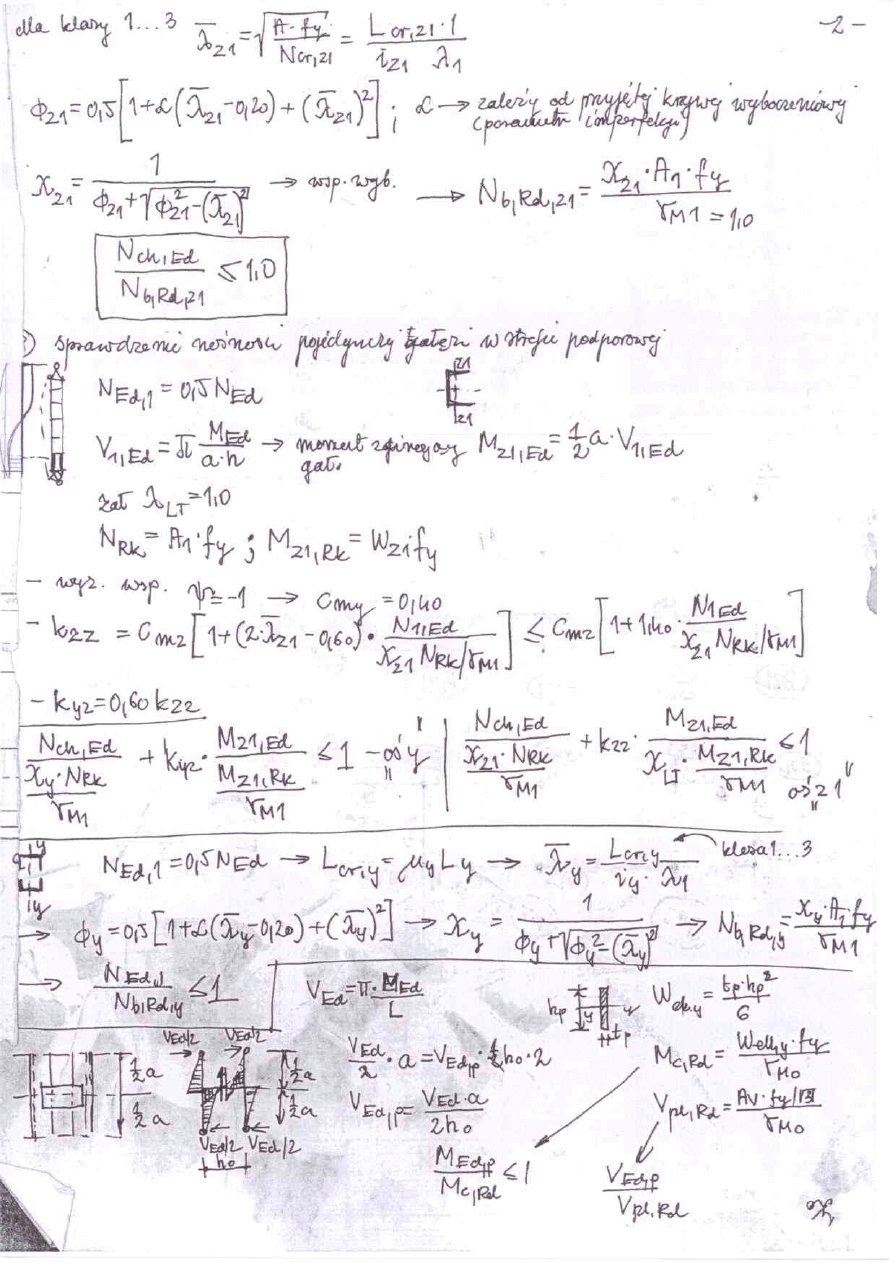 -2-
dla klasy 1...3 λ̄z1 = √(A·fy / Ncr,z1) = Lcr,z1 / iz1 · 1 / λ1
Φz1 = 0,5[1+α(λ̄z1-0,20)+(λ̄z1)²] ; α → zależy od przyjętej krzywej wyboczeniowej
(parametr imperfekcji)
χz1 = 1 / (Φz1+√(Φz1²-(λ̄z1)²)) → wsp. wyb. → Nb,Rd,z1 = χz1·A1·fy / γM1 = 1,0
Nch,Ed / Nb,Rd,z1 ≤ 1,0
) sprawdzenie nośności pojedynczej gałęzi w strefie podporowej
NEd,1 = 0,5 NEd
z1
z1
V1,Ed = π MEd / a·n → moment zginający Mz1,Ed = 1/2 a·V1,Ed
gał.
zał λLT = 1,0
NRk = A1·fy ; Mz1,Rk = Wz1 fy
- wyz. wsp. ψ = -1 → Cmy = 0,40
- kzz = Cmz[1+(2·λ̄z1-0,60)· N1,Ed / (χz1 NRk/γM1)] ≤ Cmz[1+1,40· N1Ed / (χz1 NRk/γM1)]
- kyz = 0,60 kzz
Nch,Ed / (χy·NRk / γM1) + kyz· Mz1,Ed / (Mz1,Rk / γM1) ≤ 1 - oś "y" | Nch,Ed / (χz1·NRk / γM1) + kzz· Mz1,Ed / (χLT· Mz1,Rk / γM1) ≤ 1
oś "z1"
y
y
NEd,1 = 0,5 NEd → Lcr,y = μy Ly → λ̄y = Lcr,y / iy · 1 / λ1 klasa 1...3
→ Φy = 0,5[1+α(λ̄y-0,20)+(λ̄y)²] → χy = 1 / (Φy+√(Φy²-(λ̄y)²)) → Nb,Rd,y = χy·A1·fy / γM1
→ NEd,1 / Nb,Rd,y ≤ 1
VEd = π· MEd / L
hp y y tp
Wel,y = tp·hp² / 6
VEd/2 VEd/2
1/2 a 1/2 a
VEd / 2 · a = VEd,p · 1/2 h0 · 2
Mc,Rd = Wel,y·fy / γM0
1/2 a 1/2 a
VEd,p = VEd·a / 2h0
Vpl,Rd = Av·fy/√3 / γM0
VEd/2 VEd/2
h0
MEd,p / Mc,Rd ≤ 1
VEd,p / Vpl,Rd